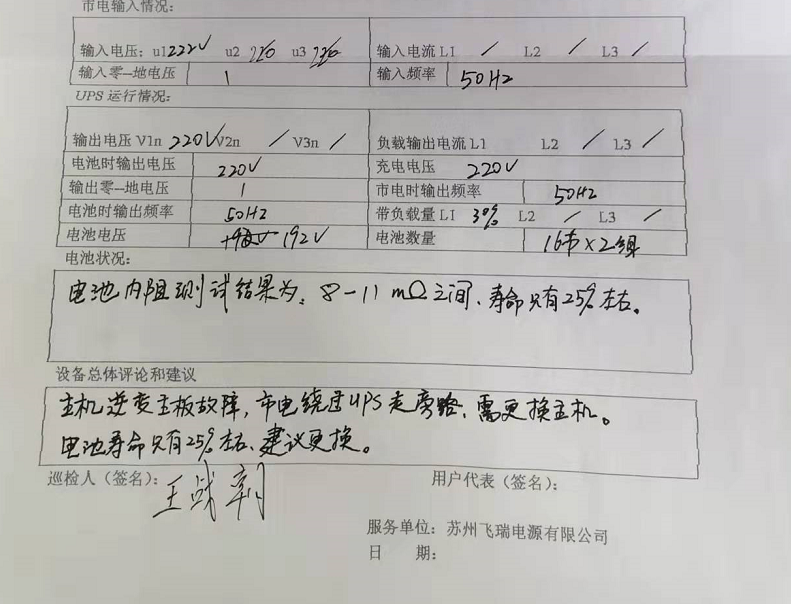 市电输入情况:
输入电压: u1 222V u2 220 u3 220 输入电流 L1 / L2 / L3 /
输入零—地电压 1 输入频率 50Hz
UPS 运行情况:
输出电压 V1n 220V V2n / V3n / 负载输出电流 L1 L2 / L3 /
电池时输出电压 220V 充电电压 220V
输出零—地电压 1 市电时输出频率 50Hz
电池时输出频率 50Hz 带负载量 L1 30% L2 / L3 /
电池电压 192V 电池数量 16节×2组
电池状况:
电池内阻测试结果为: 8-11mΩ之间、寿命只有25%左右。
设备总体评论和建议
主机逆变主板故障, 市电绕过UPS走旁路、需更换主机。
电池寿命只有25%左右、建议更换。
巡检人（签名）: 王 用户代表（签名）:
服务单位: 苏州飞瑞电源有限公司
日 期: